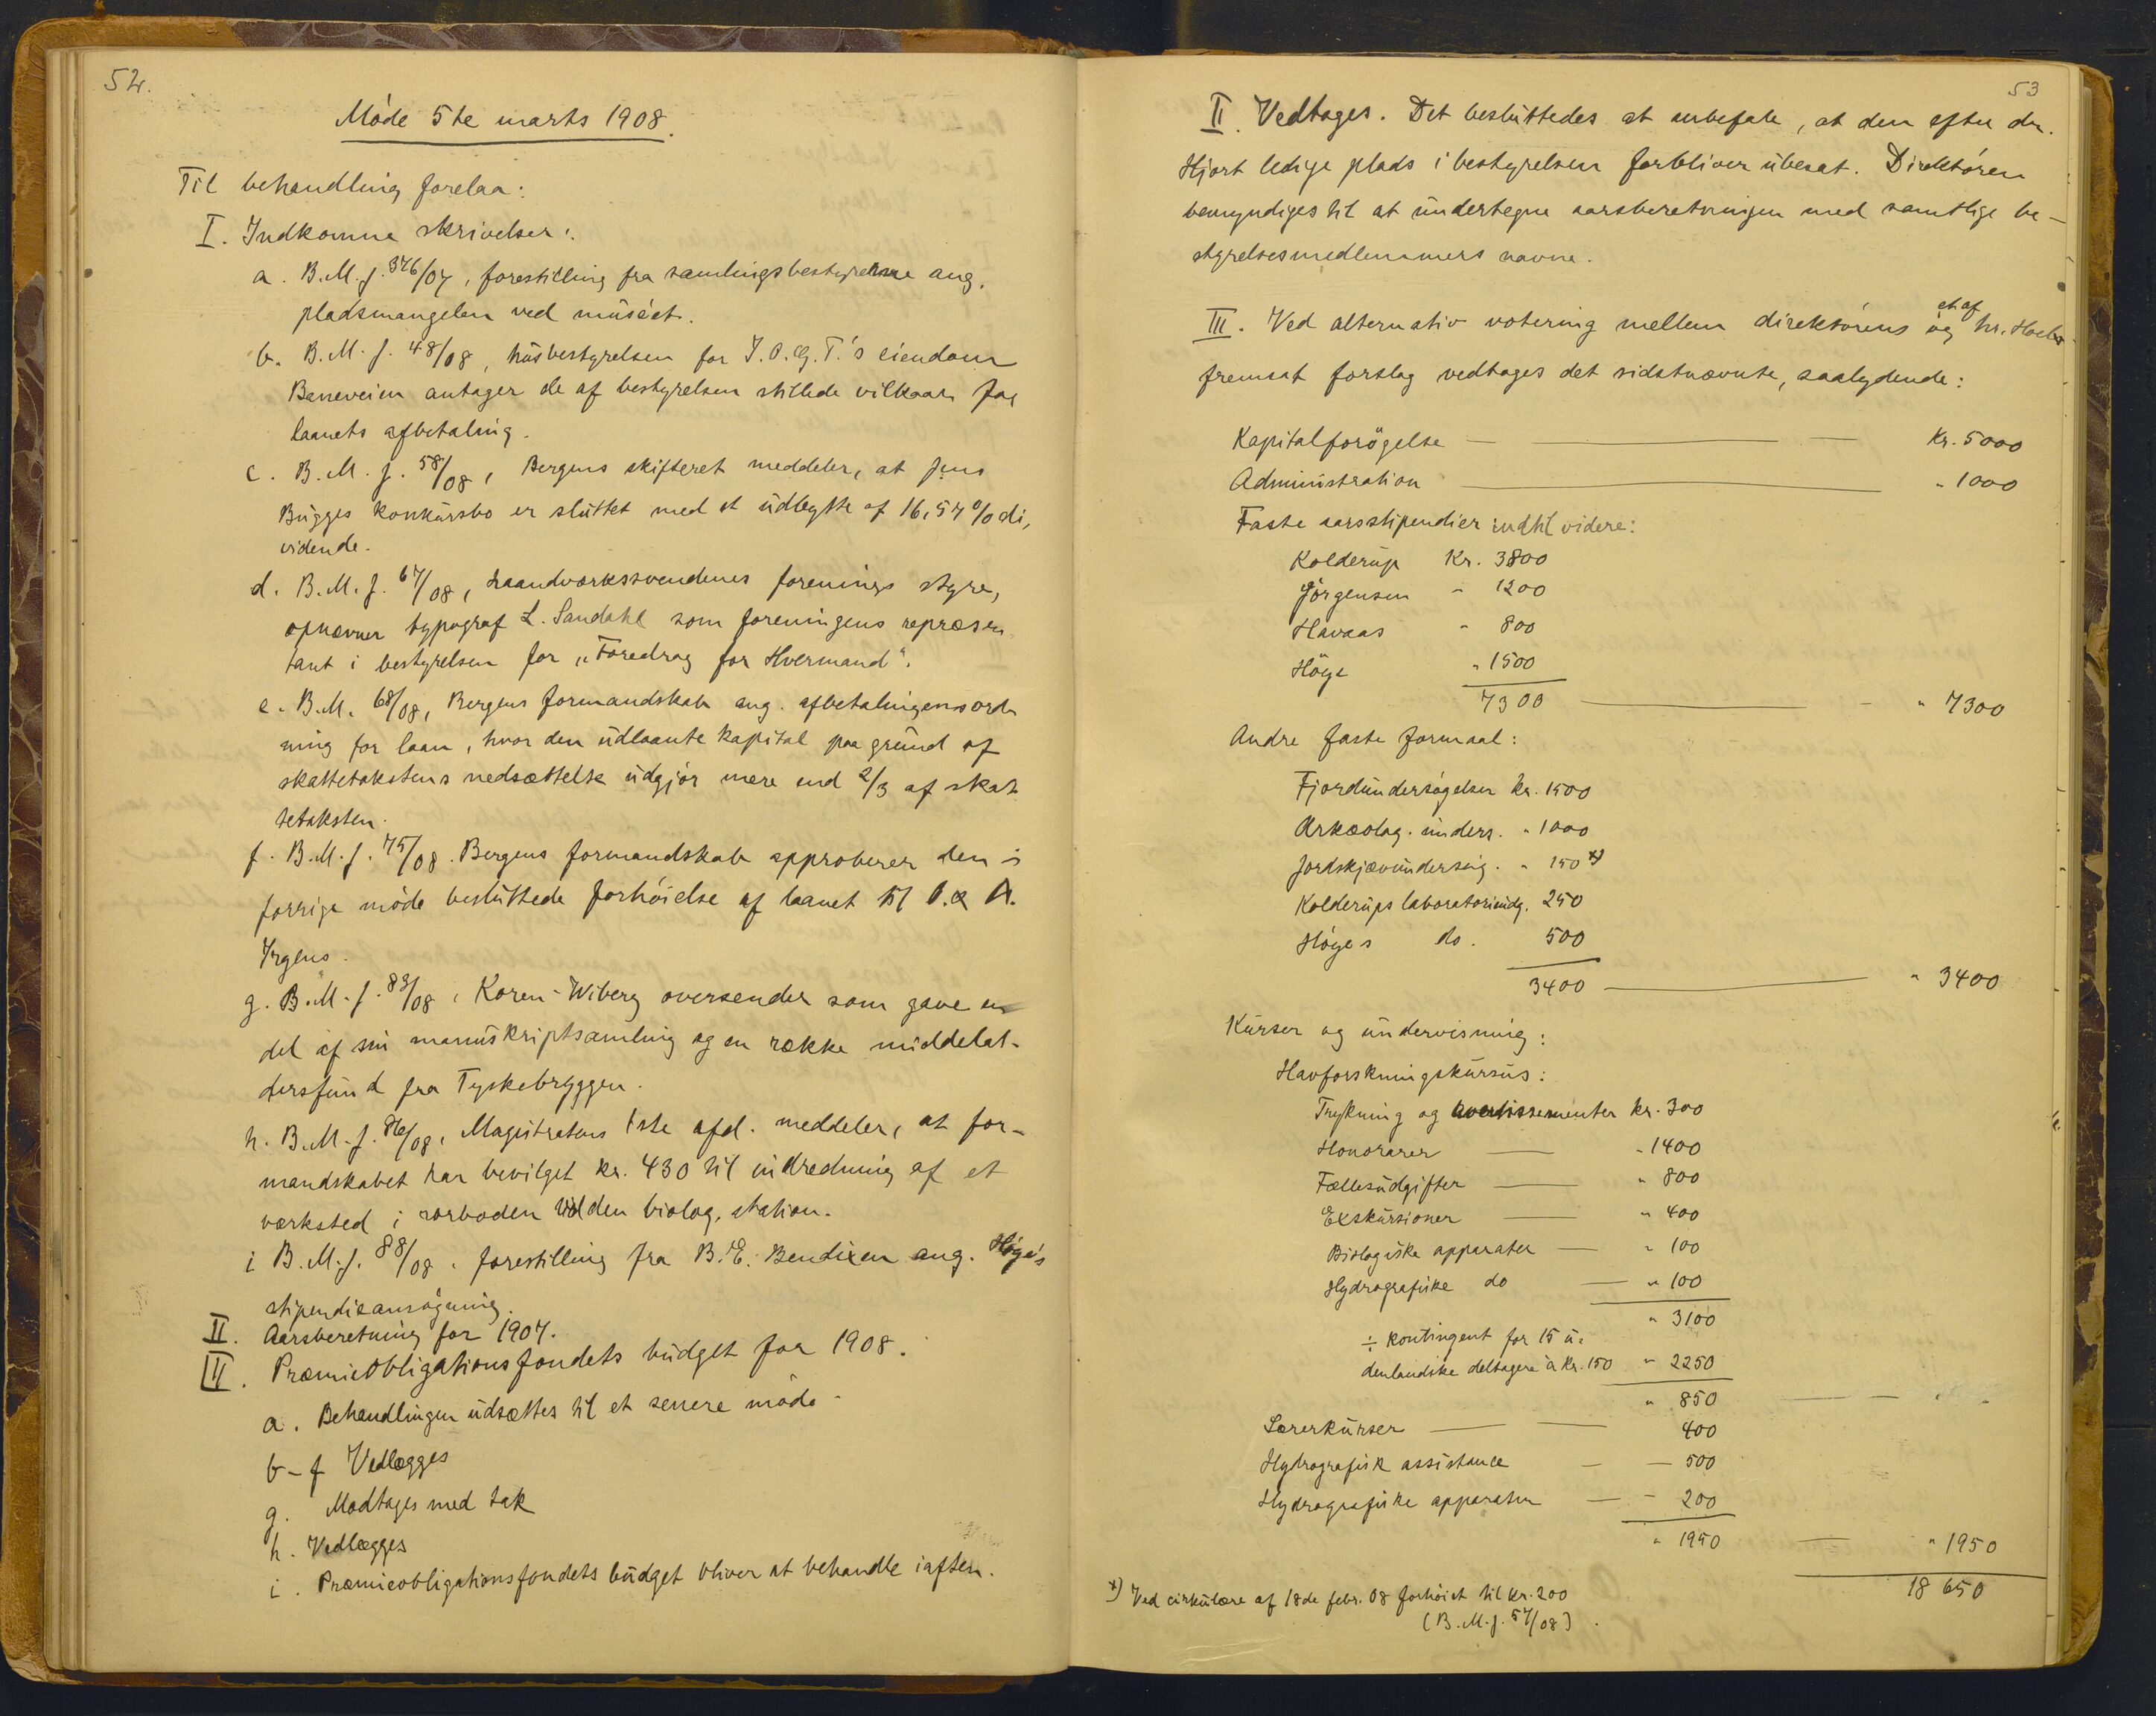 52.
Møde 5te marts 1908.
Til behandling forelaa:
I. Indkomne skrivelser:
a. B.M.J. 346/07, forestilling fra samlingsbestyrerne ang.
pladsmangelen ved muséet.
b. B.M.J. 48/08, husbestyrelsen for I.O.G.T.'s eiendom
Baneveien antager de af bestyrelsen stillede vilkaar for
laanets afbetaling.
c. B.M.J. 58/08, Bergens skifteret meddeler, at Jens
Bugges konkursbo er sluttet med et udbytte af 16,57 % di,
vidende.
d. B.M.J. 67/08, haandværkssvendenes forenings styre,
opnævner typograf L. Sandahl som foreningens repræsen
tant i bestyrelsen for „Foredrag for Hvermand".
e. B.M. 68/08, Bergens formandskab ang. afbetalingensord
ning for laan, hvor den udlaante kapital paa grund af
skattetakstens nedsættelse udgjør mere end 2/3 af skat
tetaksten.
f. B.M.J. 75/08. Bergens formandskab approberer den i
forrige møde besluttede forhøielse af laanet til O. & A.
Irgens.
g. B.M.J. 83/08, Koren-Wiberg oversender som gave en
del af sin manuskriptsamling og en række middelal-
dersfund fra Tyskebryggen.
h. B.M.J. 86/08, Magistratens 1ste afd. meddeler, at for-
mandskabet har bevilget kr. 430 til indredning af et
værksted i rorboden ved den biolog. station.
i B.M.J. 88/08. forestilling fra B.E. Bendixen ang. Høge's
stipendieansøgning.
II. Aarsberetning for 1907.
III. Præmieobligationsfondets budget for 1908.
a. Behandlingen udsættes til et senere møde.
b-f Vedlægges
g. Modtages med tak
h. Vedlægges
i. Præmieobligationsfondets budget bliver at behandle iaften.
53
II. Vedtages. Det besluttedes at anbefale, at den efter dr.
Hjort ledige plads i bestyrelsen forbliver ubesat. Direktøren
bemyndiges til at undertegne aarsberetningen med samtlige be-
styrelsesmedlemmers navne.
III. Ved alternativ votering mellem direktørens og et af hr.
fremsat forslag vedtages det sidstnævnte, saalydende:
Kapitalforøgelse — kr. 5000
Administration — " 1000
Faste aarsstipendier indtil videre:
Kolderup kr. 3800
Jörgensen " 1200
Havaas " 800
Höge " 1500
7300 — " 7300
Andre faste formaal:
Fjordundersøgelser kr. 1500
Arkæolog. unders. " 1000
Jordskjævundersøg. " 150 x)
Kolderups laboratorieudg. 250
Høges do. 500
3400 — " 3400
Kurser og undervisning:
Havforskningskursus:
Trykning og avertissementer kr. 300
Honorarer — " 1400
Fællesudgifter — " 800
Exskursioner — " 400
Biologiske apparater — " 100
Hydrografiske do — " 100
" 3100
÷ kontingent for 15 u-
denlandske deltagere à kr. 150 " 2250
" 850 — —
Lærerkurser — — 400
Hydrografisk assistance — — 500
Hydrografiske apparater — - 200
" 1950 — " 1950
18 650
x) Ved cirkulære af 18de febr. 08 forhøiet til kr. 200
(B.M.J. 57/08).